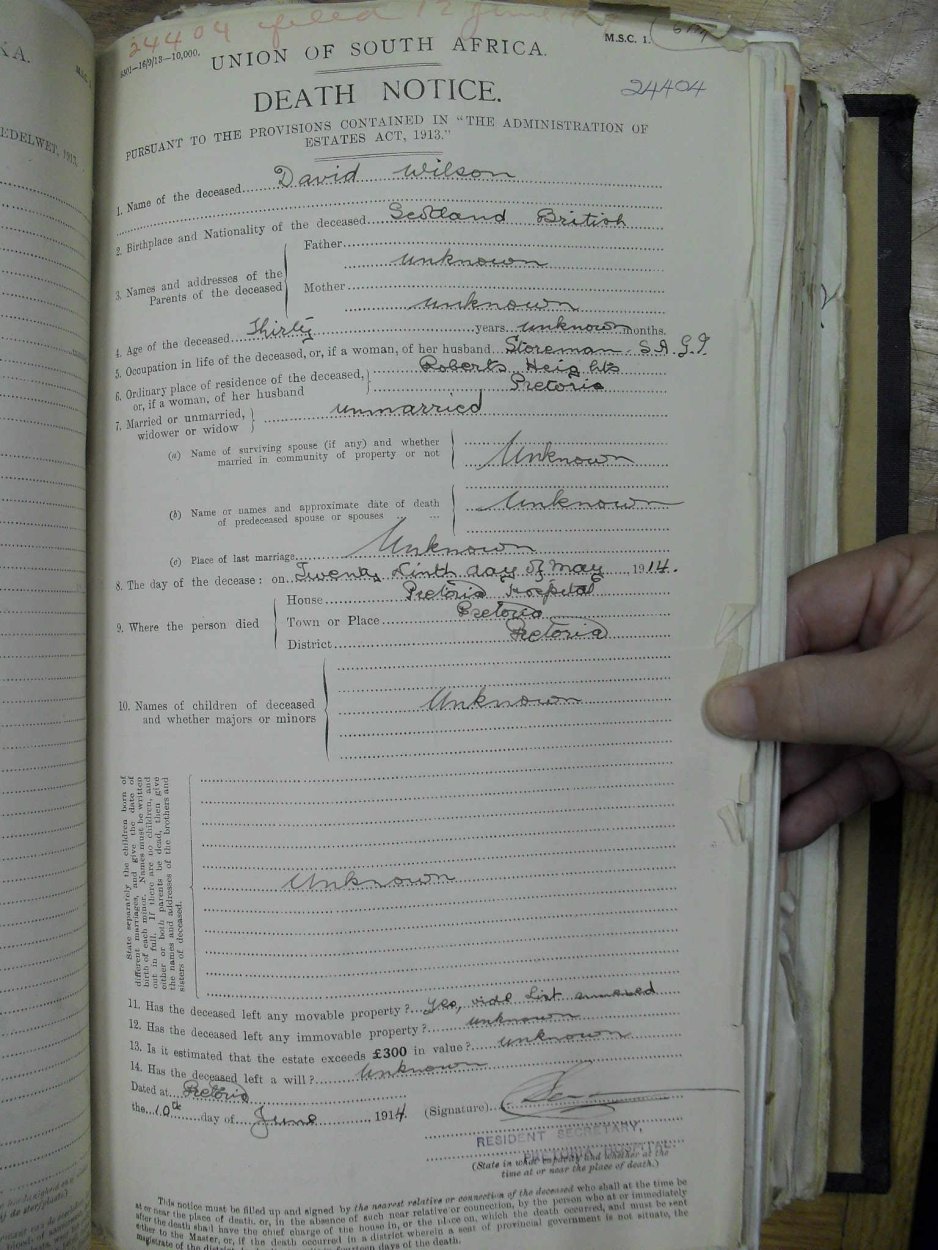 24404 filed 12 June
6301—16/9/13—10,000.
M.S.C. 1.
UNION OF SOUTH AFRICA.
24404
DEATH NOTICE.
PURSUANT TO THE PROVISIONS CONTAINED IN "THE ADMINISTRATION OF
ESTATES ACT, 1913."
1. Name of the deceased David Wilson
2. Birthplace and Nationality of the deceased Scotland British
3. Names and addresses of the Parents of the deceased
Father unknown
Mother unknown
4. Age of the deceased Thirty years unknown months.
5. Occupation in life of the deceased, or, if a woman, of her husband Storeman S.A.G.I.
6. Ordinary place of residence of the deceased, or, if a woman, of her husband
Roberts Heights
Pretoria
7. Married or unmarried, widower or widow unmarried
(a) Name of surviving spouse (if any) and whether
married in community of property or not Unknown
(b) Name or names and approximate date of death
of predeceased spouse or spouses ... ... Unknown
(c) Place of last marriage Unknown
8. The day of the decease: on Twenty Ninth day of May, 1914.
9. Where the person died
House Pretoria Hospital
Town or Place Pretoria
District Pretoria
10. Names of children of deceased
and whether majors or minors Unknown
State separately the children born of
different marriages, and give the date of
birth of each minor. Names must be written
out in full. If there are no children, and
either or both parents be dead, then give
the names and addresses of the brothers and
sisters of deceased.
Unknown
11. Has the deceased left any movable property? Yes, vide List annexed
12. Has the deceased left any immovable property? unknown
13. Is it estimated that the estate exceeds £300 in value? unknown
14. Has the deceased left a will? Unknown
Dated at Pretoria
the 10th day of June 1914. (Signature)
RESIDENT SECRETARY,
PRETORIA HOSPITAL.
(State in what capacity and whether at the
time at or near the place of death.)
This notice must be filled up and signed by the nearest relative or connection of the deceased who shall at the time be
at or near the place of death, or, in the absence of such near relative or connection, by the person who at or immediately
after the death shall have the chief charge of the house in, or the place on, which the death occurred, and must be sent
either to the Master, or, if the death occurred in a district wherein a seat of provincial government is not situate, the
magistrate of the district, days of the death.